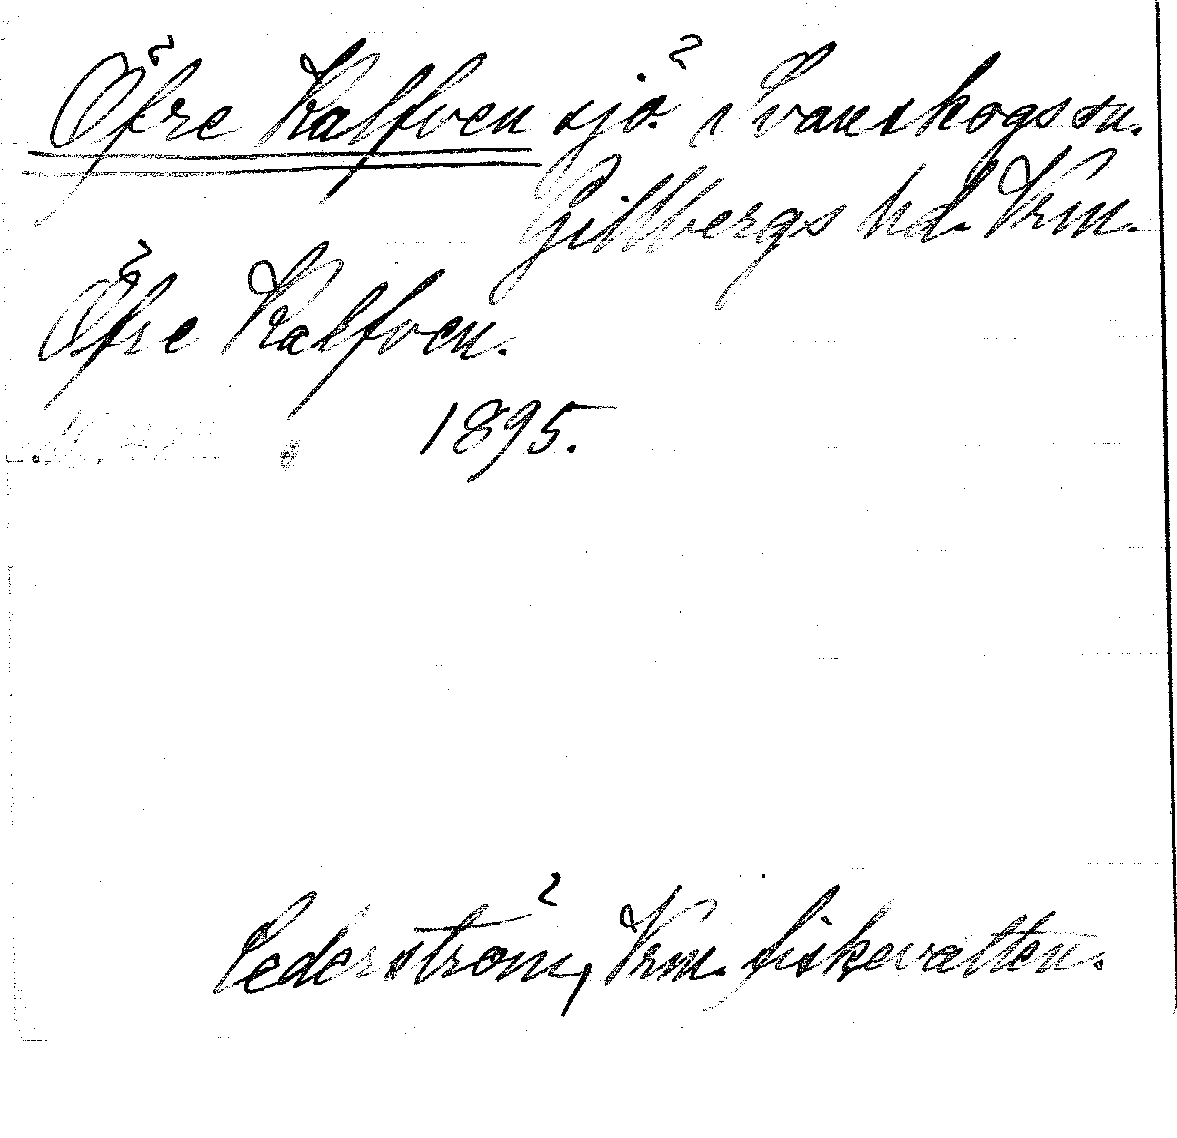 Öfre Kalfven sjö i Svanskogs sn.
Gillbergs hd. Vrm.
Öfre Kalfven.
1895.
Cederström, Vrm. fiskevatten.